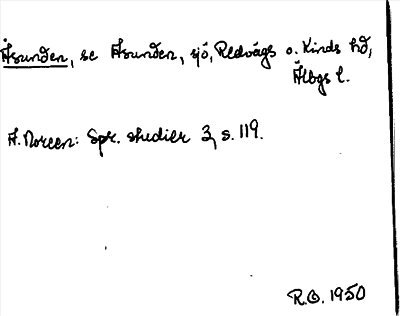 Åsunden, se Åsunden, sjö, Redvägs o. Kinds hd,
Älvbgs l.
A. Noreen: Spr. studier 3, s. 119.
R.O. 1950